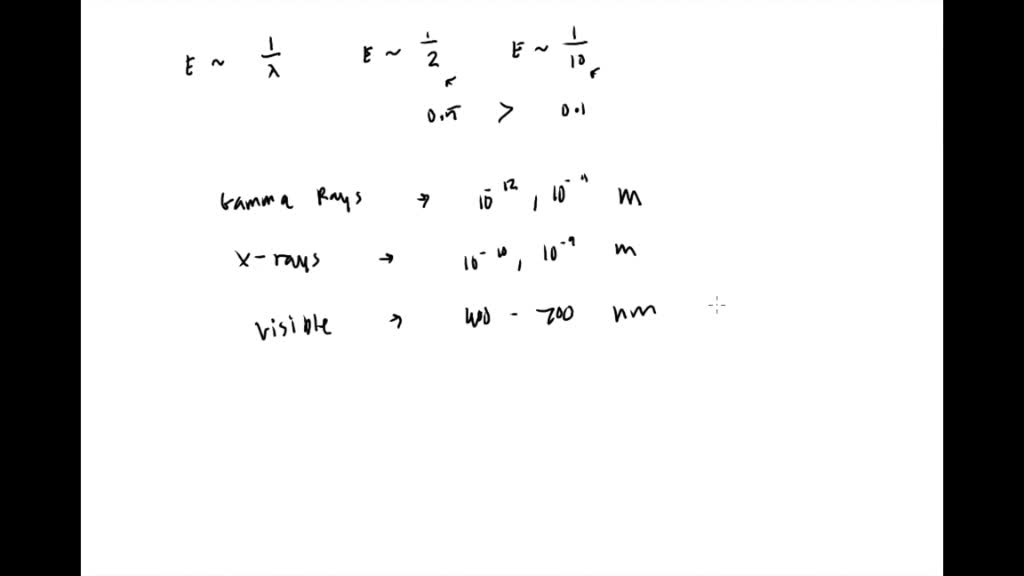 E ~ 1/λ E ~ 1/2 E ~ 1/10
0.5 > 0.1
Gamma Rays → 10^-12, 10^-11 m
X-rays → 10^-10, 10^-9 m
visible → 400 - 700 nm